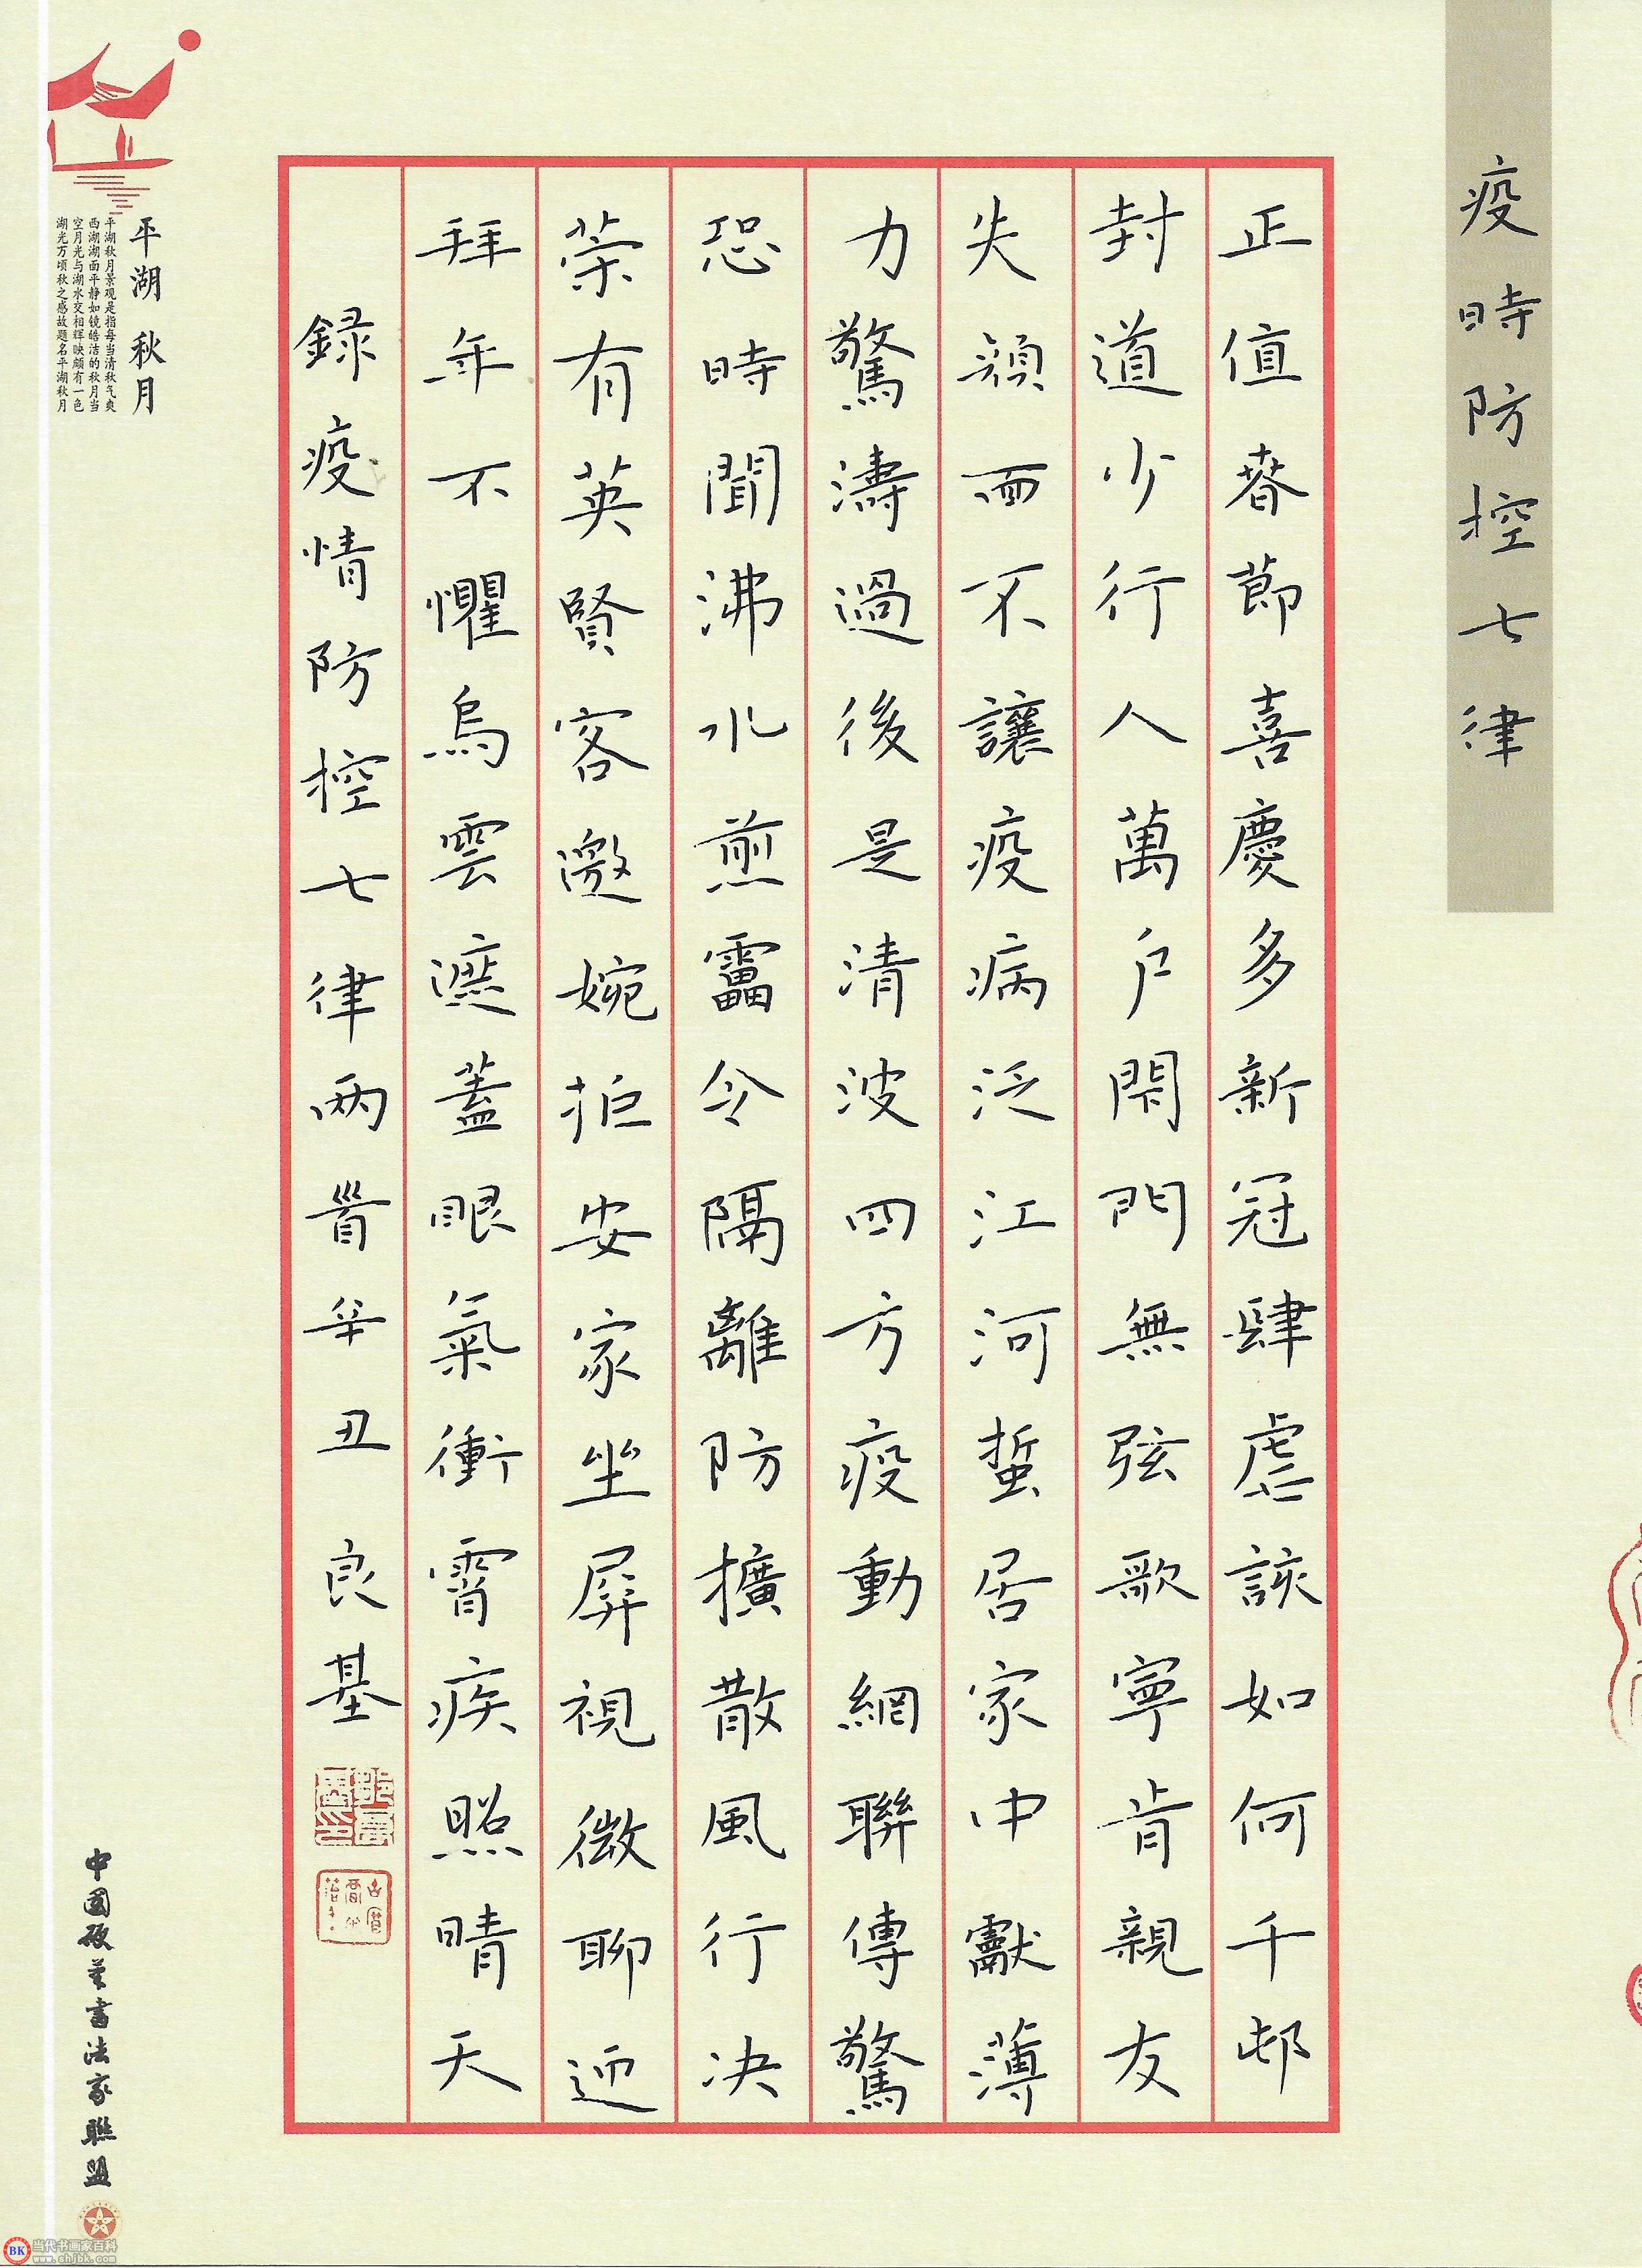 疫時防控七律
正值春節喜慶多新冠肆虐該如何千邨
封道少行人萬戶閉門無弦歌寧肯親友
失顏面不讓疫病泛江河蜇居家中獻薄
力驚濤過後是清波四方疫動網聯傳驚
恐時聞沸水煎靁令隔離防擴散風行决
榮有英賢客邀婉拒安家坐屏視微聊迎
拜年不懼烏雲遮蓋眼氣衝霄疾照晴天
錄疫情防控七律兩首辛丑 良基
平湖 秋月
平湖秋月景观是指每当清秋气爽
西湖湖面平静如镜皓洁的秋月当
空月光与湖水交相辉映颇有一色
湖光万顷秋之感故题名平湖秋月
中國硬筆書法家聯盟
BK 当代书画家百科
www.shjbk.com